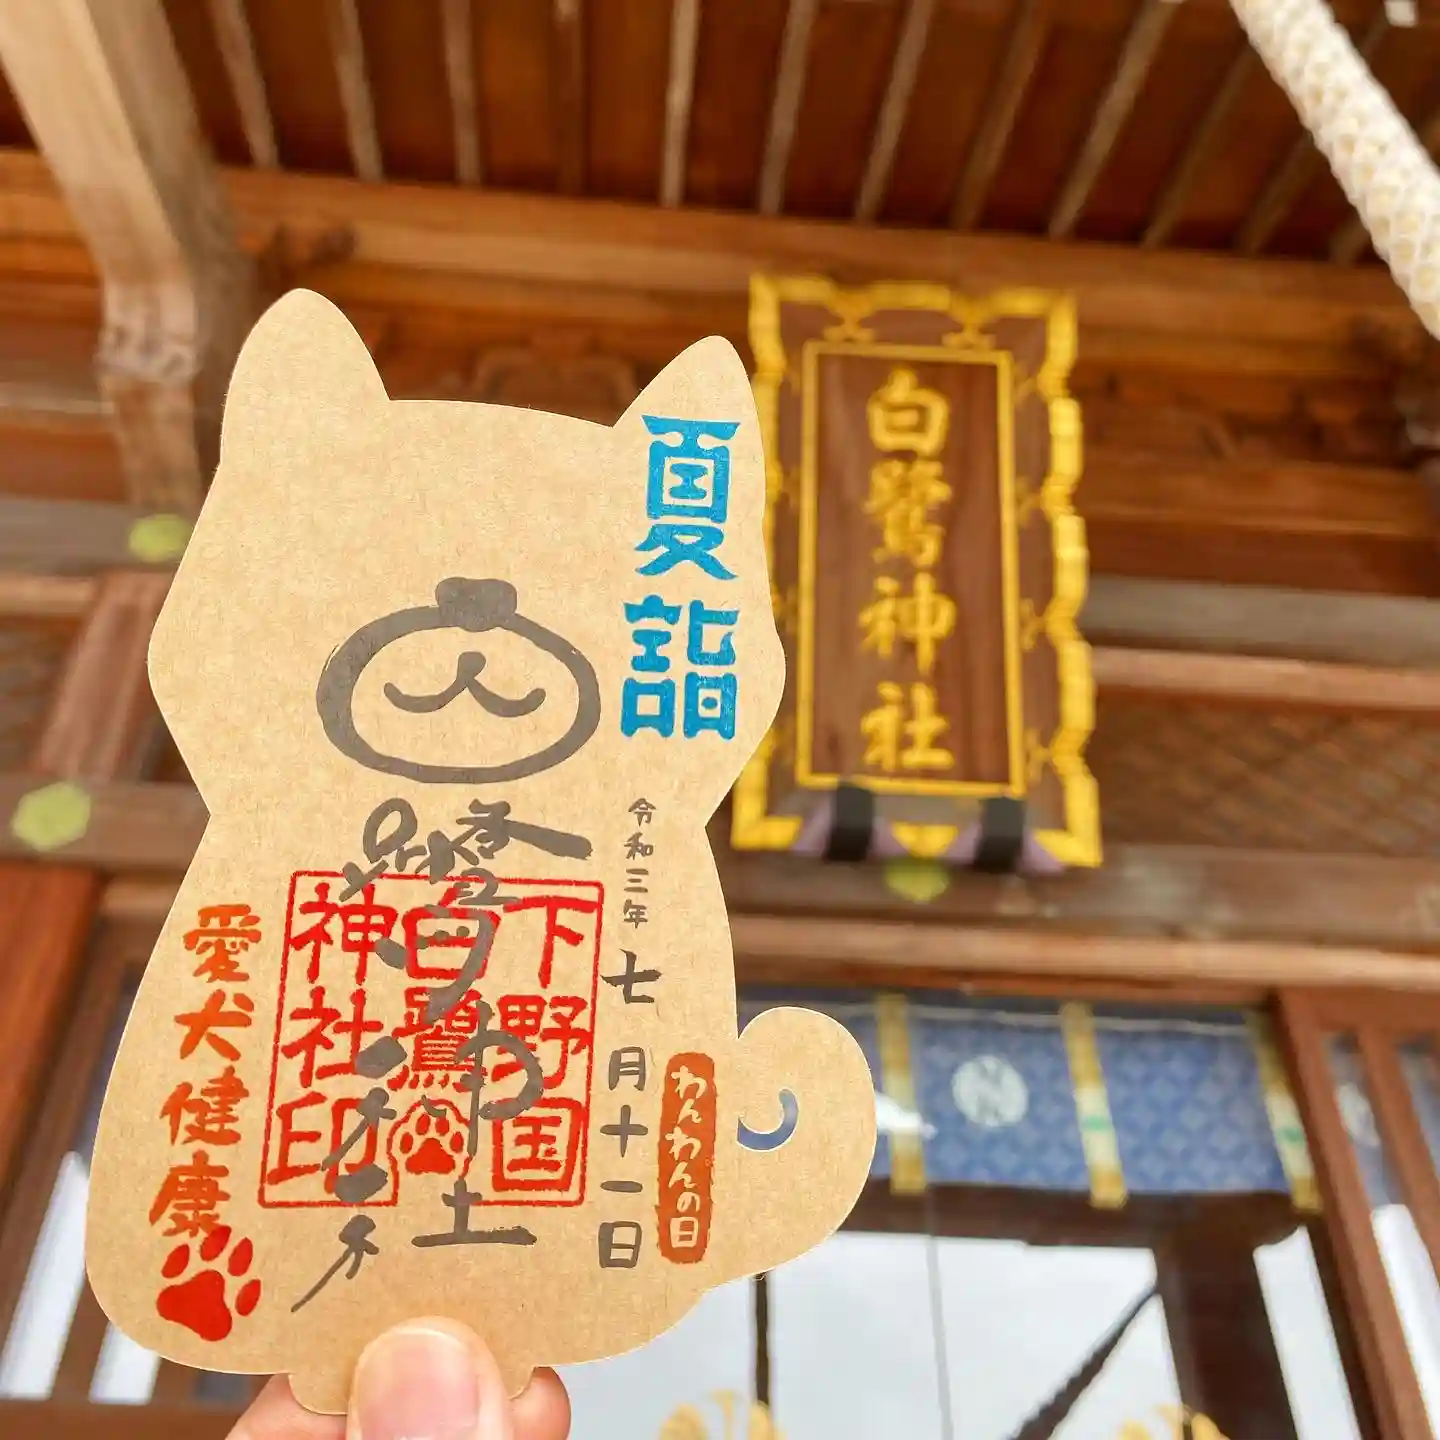 夏詣
令和三年
七月十一日
わんわんの日
下野国
白鷺
神社印
愛犬健康
白鷺神社